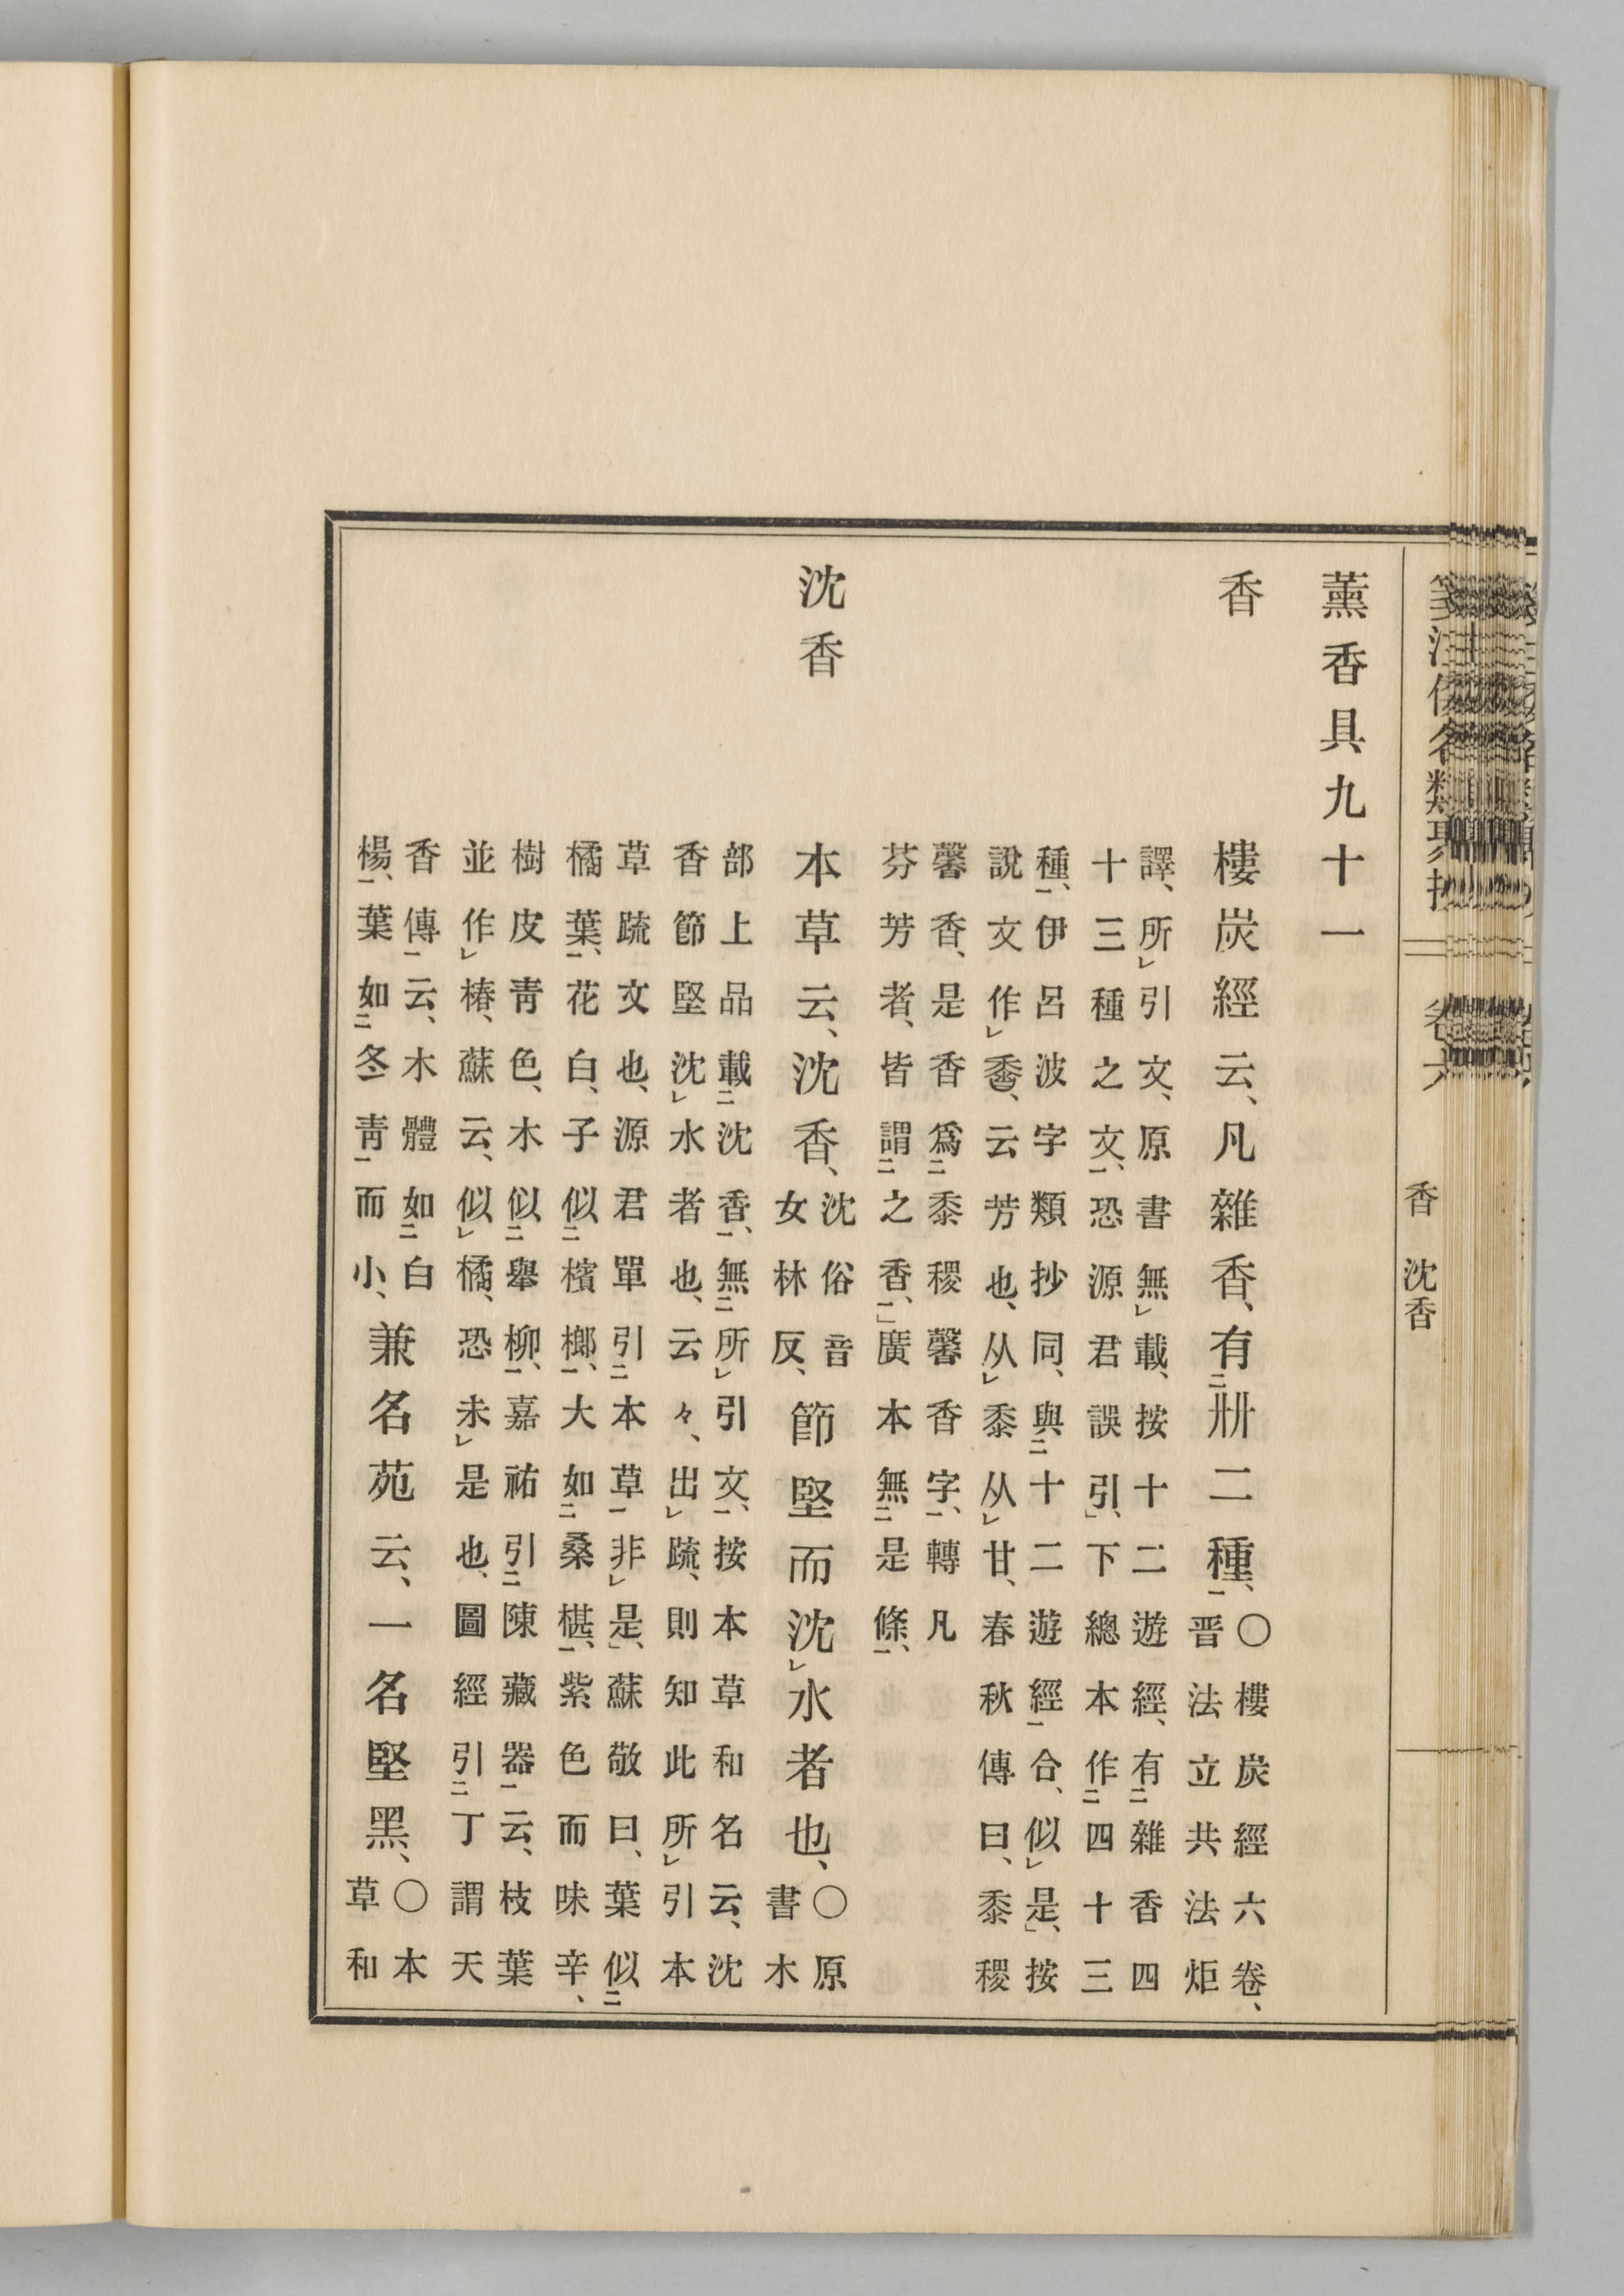 箋注倭名類聚抄 卷六 香 沈香
薰香具九十一
香 樓炭經云、凡雜香、有㆓卌二種㆒、
○樓炭經六卷、
晋法立共法炬
譯、所㆑引文、原書無㆑載、按十二遊經、有㆓雜香四
十三種之文㆒、恐源君誤引、」下總本作㆓四十三
種㆒、伊呂波字類抄同、與㆓十二遊經㆒合、似㆑是、」按
說文作㆑𪏽、云芳也、从㆑黍从㆑甘、春秋傳曰、黍稷
馨香、是香爲㆓黍稷馨香字㆒、轉凡
芬芳者、皆謂㆓之香㆒、」廣本無㆓是條㆒、
沈香 本草云、沈香、
沈俗音
女林反、
節堅而沈㆑水者也、
○原
書木
部上品載㆓沈香㆒、無㆓所㆑引文㆒、按本草和名云、沈
香節堅沈㆑水者也、云々、出㆑疏、則知此所㆑引本
草疏文也、源君單引㆓本草㆒非㆑是、」蘇敬曰、葉似㆓
橘葉㆒、花白、子似㆓檳榔㆒、大如㆓桑椹㆒、紫色而味辛、
樹皮靑色、木似㆓舉柳㆒、嘉祐引㆓陳藏器㆒云、枝葉
並作㆑椿、蘇云、似㆑橘、恐未㆑是也、圖經引㆓丁謂天
香傳㆒云、木體如㆓白
楊㆒、葉如㆓冬靑㆒而小、
兼名苑云、一名堅黑、
○本
草和